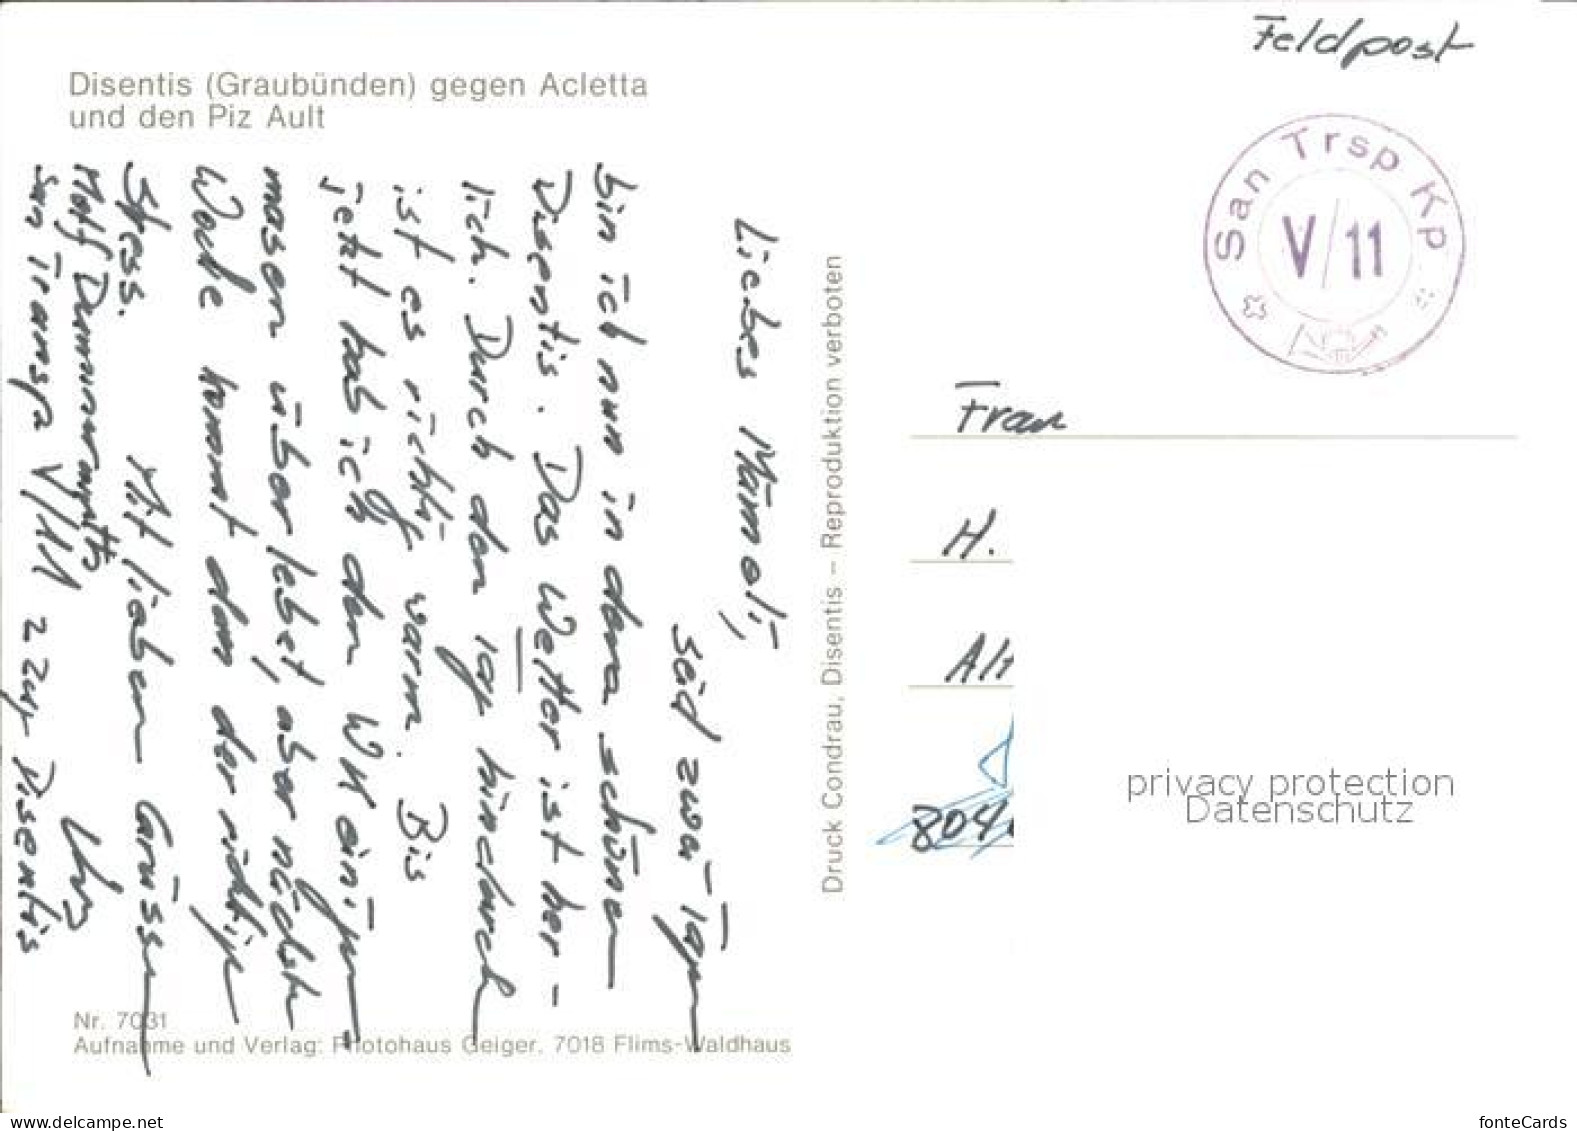 Disentis (Graubünden) gegen Acletta
und den Piz Ault
Liebes Mämoli,
seid zwei Tagen
bin ich nun in dem schönen
Disentis. Das Wetter ist herr-
lich. Durch den Tag hindurch
ist es richtig warm. Bis
jetzt hab ich den WK einiger
masen überlebt, aber nächste
Woche kommt dann der richtige
Stress. Mit lieben Grüssen
Motf
San Transp V/11 2 Zug Disentis
Nr. 7031
Aufnahme und Verlag: Photohaus Geiger, 7018 Flims-Waldhaus
Druck Condrau, Disentis – Reproduktion verboten
Feldpost
San Trsp Kp
V/11
Frau
H.
Alt
804
privacy protection
Datenschutz
www.delcampe.net
fonteCards